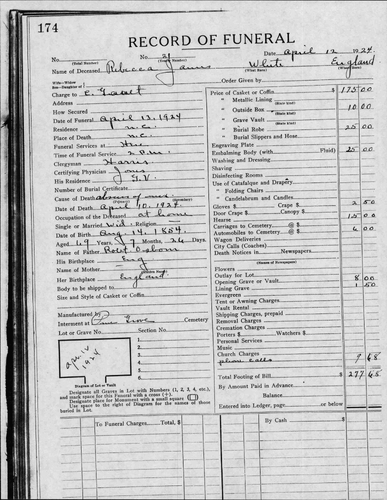 174
RECORD OF FUNERAL
No. No. 21 Date April 12 1924
(Total Number) (Yearly Number)
Name of Deceased Rebecca White England
(What Race) (Where Born)
Wife—Widow
Son—Daughter of Order Given by
Charge to
Address
How Secured
Date of Funeral April 12, 1924
Residence N.C.
Place of Death N.C.
Funeral Services at
Time of Funeral Service 2 P.M.
Clergyman Harris
Certifying Physician Jones
His Residence
Number of Burial Certificate
Cause of Death
Date of Death April 10, 1924
Occupation of the Deceased at home
Single or Married Wid. Religion
Date of Birth Aug. 14, 1854
Aged 69 Years, 7 Months, 26 Days
Name of Father Osborn
His Birthplace Eng
Name of Mother
Her Birthplace England
Body to be shipped to
Size and Style of Casket or Coffin
Manufactured by
Interment at Grove Cemetery
Lot or Grave No. Section No.
1.
2.
3.
4.
5.
6.
Apr. 12
1924
Diagram of Lot or Vault
Designate all Graves in Lot with Numbers (1, 2, 3, 4, etc.),
and mark space for this Funeral with a cross (+).
Designate place for Monument with a small square
Use space to the right of Diagram for the names of those
buried in Lot.
Price of Casket or Coffin $ 175 00
" Metallic Lining
(State Kind)
" Outside Box 10 00
(State Kind)
" Grave Vault
(State Kind)
" Burial Robe 25 00
(State Kind)
" Burial Slippers and Hose
Engraving Plate
Embalming Body (with Fluid) 25 00
Washing and Dressing
Shaving
Disinfecting Rooms
Use of Catafalque and Drapery
" Folding Chairs
" Candelabrum and Candles
Gloves $ 2 50
Door Crape $
Hearse 15 00
Carriages to Cemetery @ $
Automobiles to Cemetery @ $ 6 00
Wagon Deliveries
City Calls (Coaches)
Death Notices in Newspapers
(Names of Newspapers)
Flowers
Outlay for Lot
Opening Grave or Vault 8 00
Lining Grave 1 50
Evergreen
Tent or Awning Charges
Vault Rental
Shipping Charges, prepaid
Removal Charges
Cremation Charges
Porters $ Watchers $
Personal Services
Music
Church Charges
phone calls 9 65
Total Footing of Bill $ 277 65
By Amount Paid in Advance
Balance
Entered into Ledger, page or below
To Funeral Charges, Total $ By Cash $